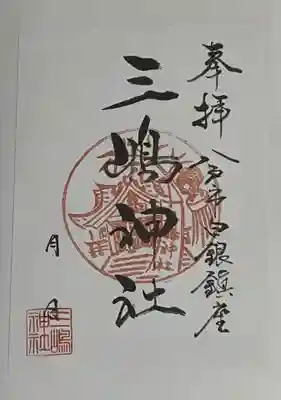 奉拝 八戸市白銀鎮座
三嶋神社
月 日
三嶋神社